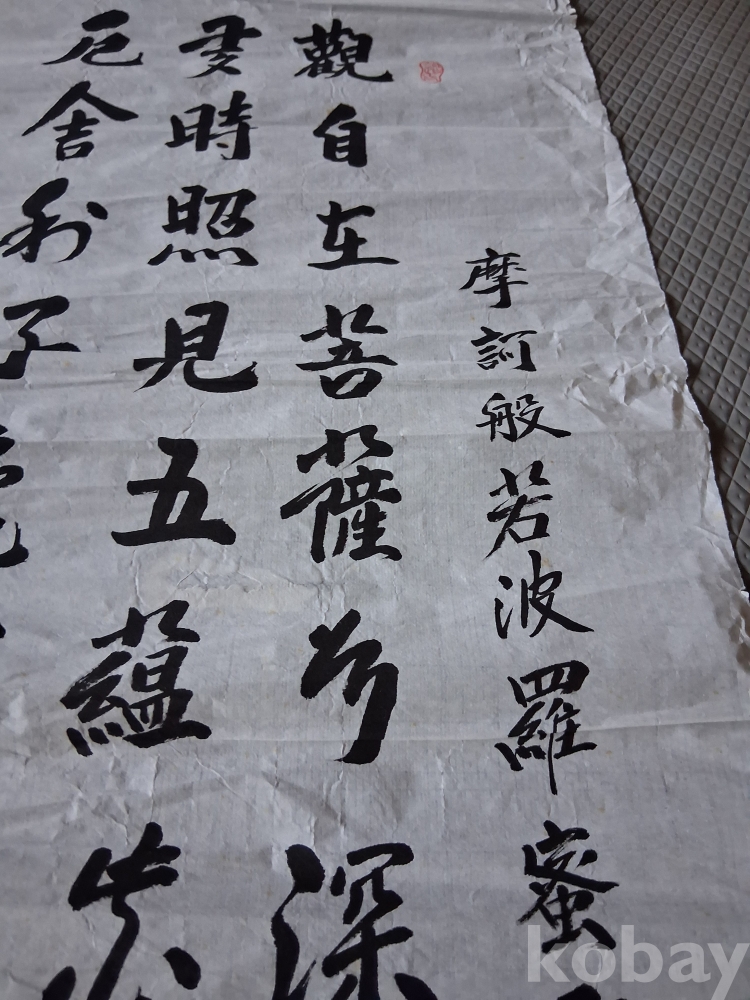 摩訶般若波羅蜜
觀自在菩薩行深
多時照見五蘊
厄舍利子
kobay